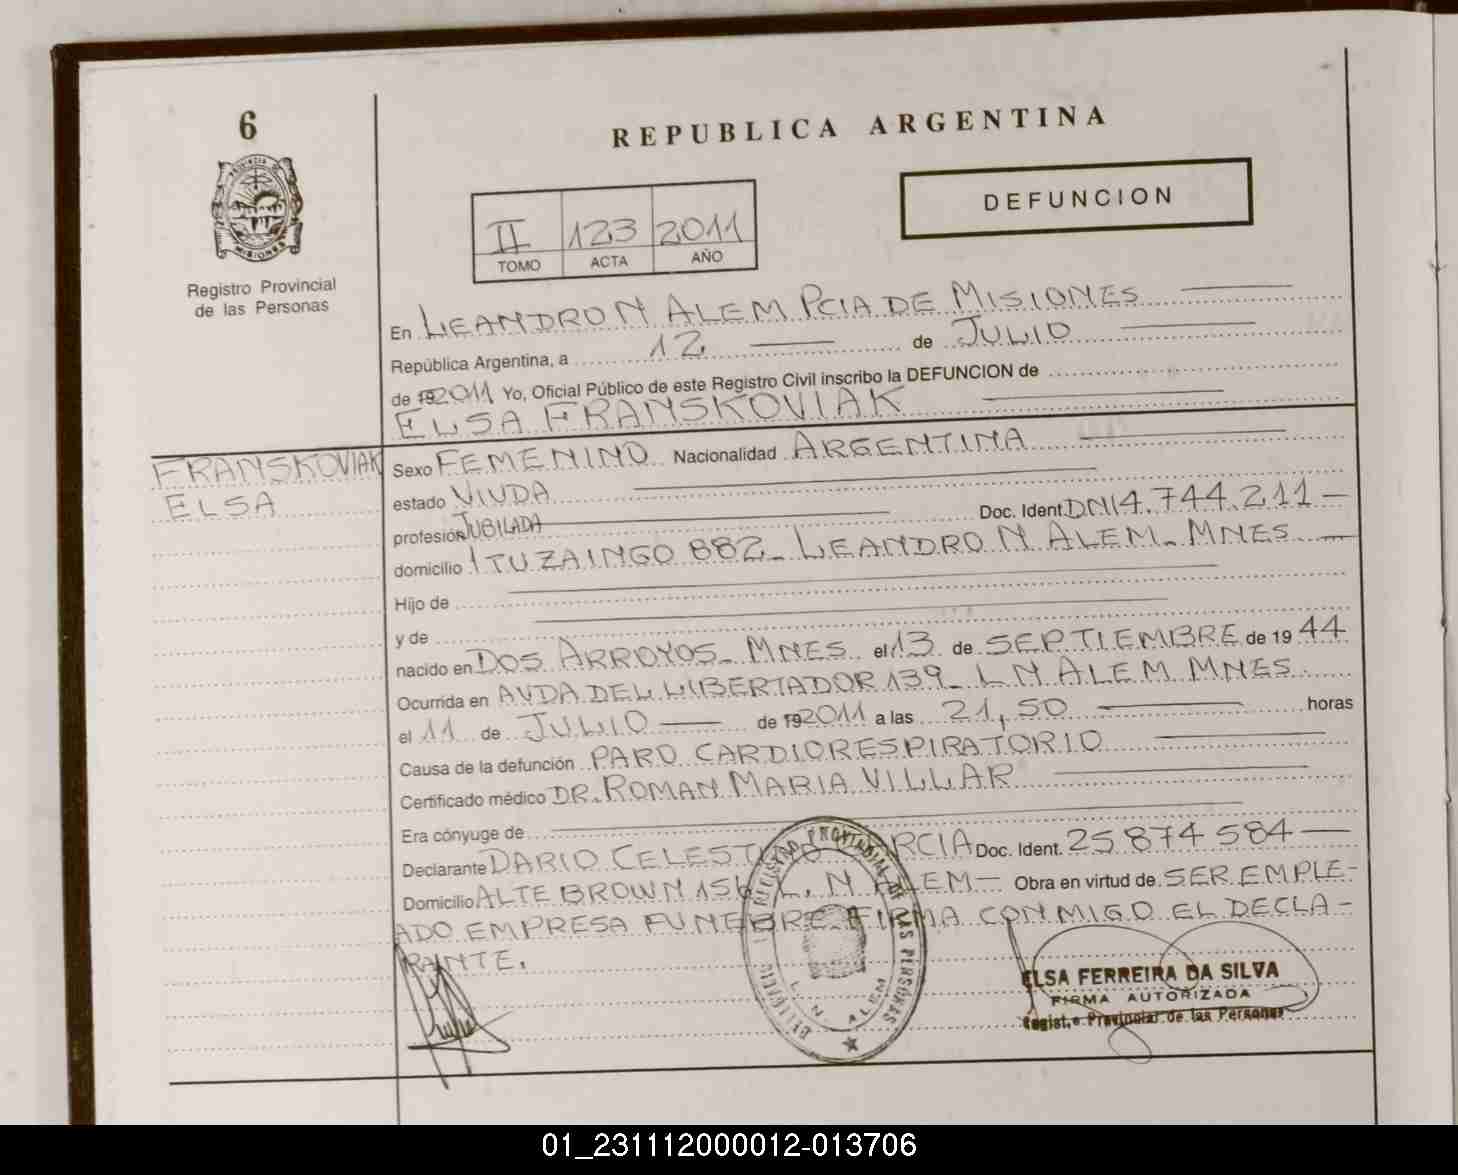 6
PROVINCIA DE
MISIONES
Registro Provincial
de las Personas
REPUBLICA ARGENTINA
DEFUNCION
II 123 2011
TOMO ACTA AÑO
En LEANDRO N ALEM PCIA DE MISIONES
República Argentina, a 12 de JULIO
de 192011 Yo, Oficial Público de este Registro Civil inscribo la DEFUNCION de
ELSA FRANSKOVIAK
FRANSKOVIAK
ELSA
Sexo FEMENINO Nacionalidad ARGENTINA
estado VIUDA
profesión JUBILADA Doc. Ident. DNI 4.744.211 —
domicilio ITUZAINGO 882_ LEANDRO N ALEM_ MNES —
Hijo de
y de
nacido en DOS ARROYOS_ MNES el 13 de SEPTIEMBRE de 19 44
Ocurrida en AVDA DEL LIBERTADOR 139_ L N ALEM MNES
el 11 de JULIO — de 192011 a las 21,50 — horas
Causa de la defunción PARO CARDIORESPIRATORIO
Certificado médico DR. ROMAN MARIA VILLAR
Era cónyuge de
Declarante DARIO CELEST RCIA Doc. Ident. 25 874 584 —
Domicilio ALTE BROWN 156 L. N ALEM — Obra en virtud de SER EMPLE-
ADO EMPRESA FUNEBRE. FIRMA CONMIGO EL DECLA-
RANTE.
REGISTRO PROVINCIAL DE LAS PERSONAS
L. N. ALEM
ELSA FERREIRA DA SILVA
FIRMA AUTORIZADA
Regist.o Provincial de las Personas
01_231112000012-013706